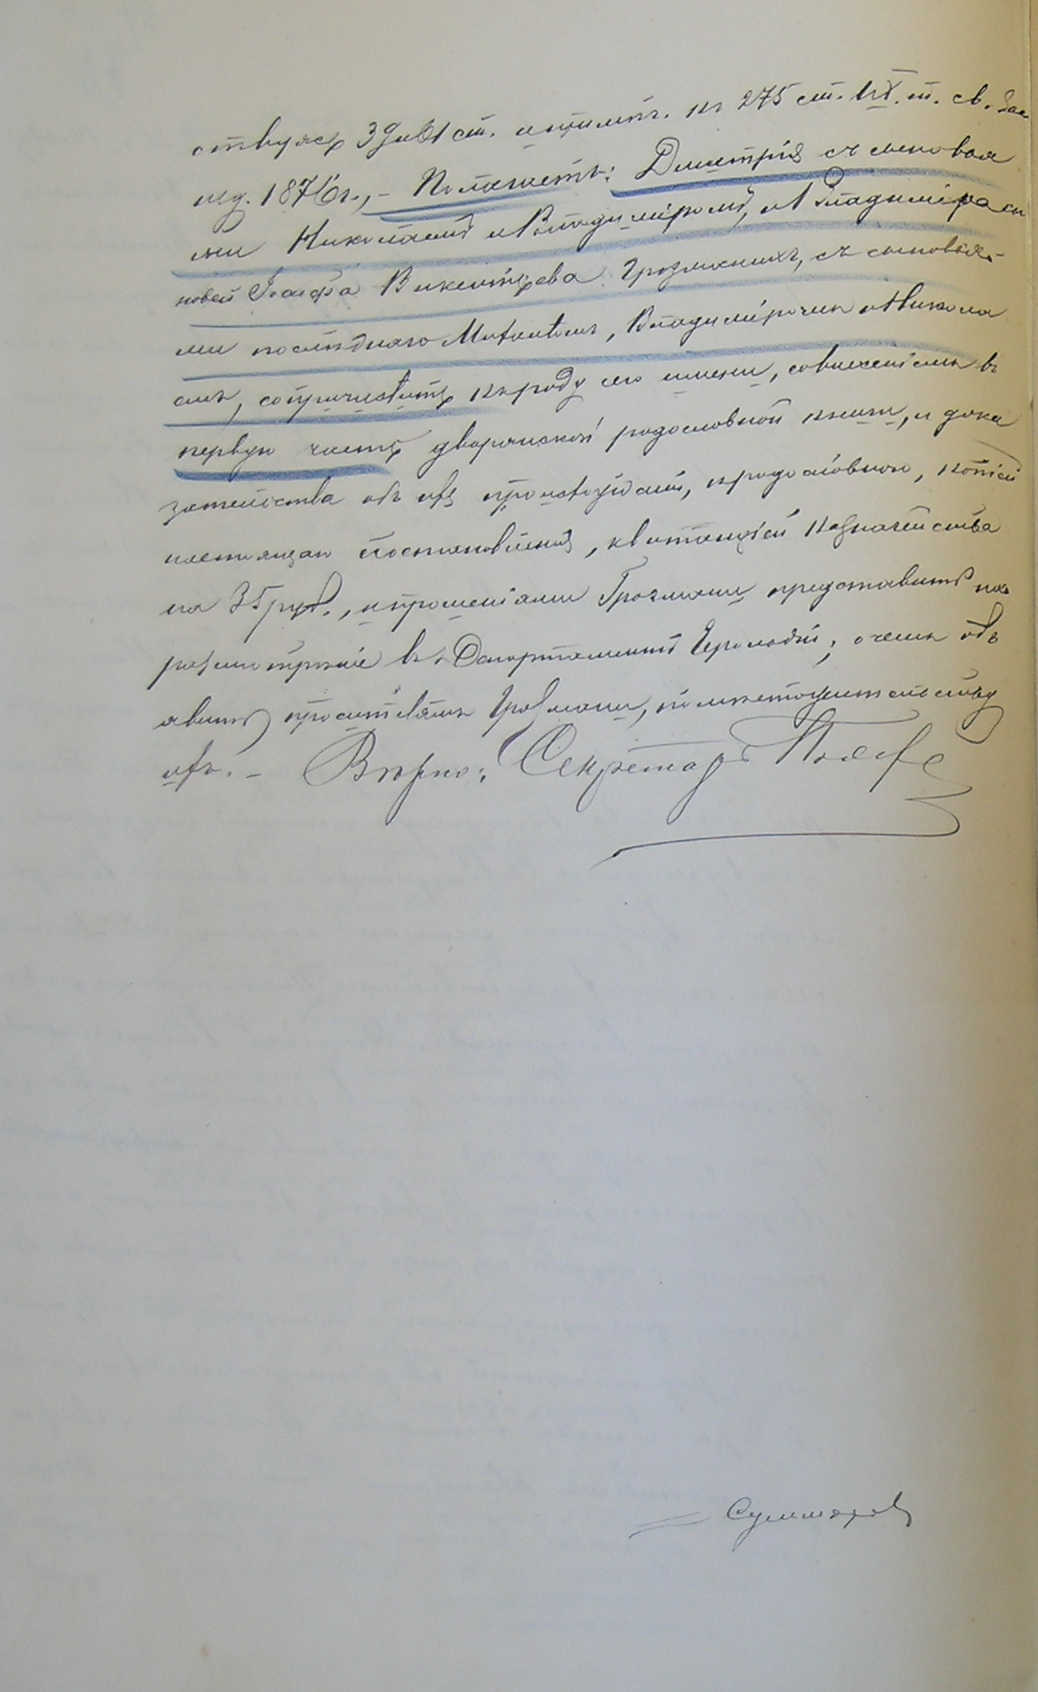 ствуясь 39 и 61 ст. и примѣч. къ 275 ст. IX т. св. Зак.
изд. 1876 г., – Полагаетъ: Дмитрія съ сыновья
ми Николаемъ и Владиміромъ, и Владиміра сы
новей Іосифа Викентьева Грозмани, съ сыновья-
ми послѣдняго Михаиломъ, Владиміромъ и Никола
емъ, сопричислить къ роду сего имени, со внесеніемъ въ
первую часть дворянской родословной книги, и дока
зательства объ ихъ происхожденіи, съ родословною, копіею
настоящаго постановленія, квитанціей Казначейства
на 3 руб., и прошеніями Грозмани представить на
разсмотрѣніе въ Департаментъ Герольдіи; о чемъ объ
явить просителямъ Грозмани, по мѣстожительству
ихъ. – Вѣрно: Секретарь